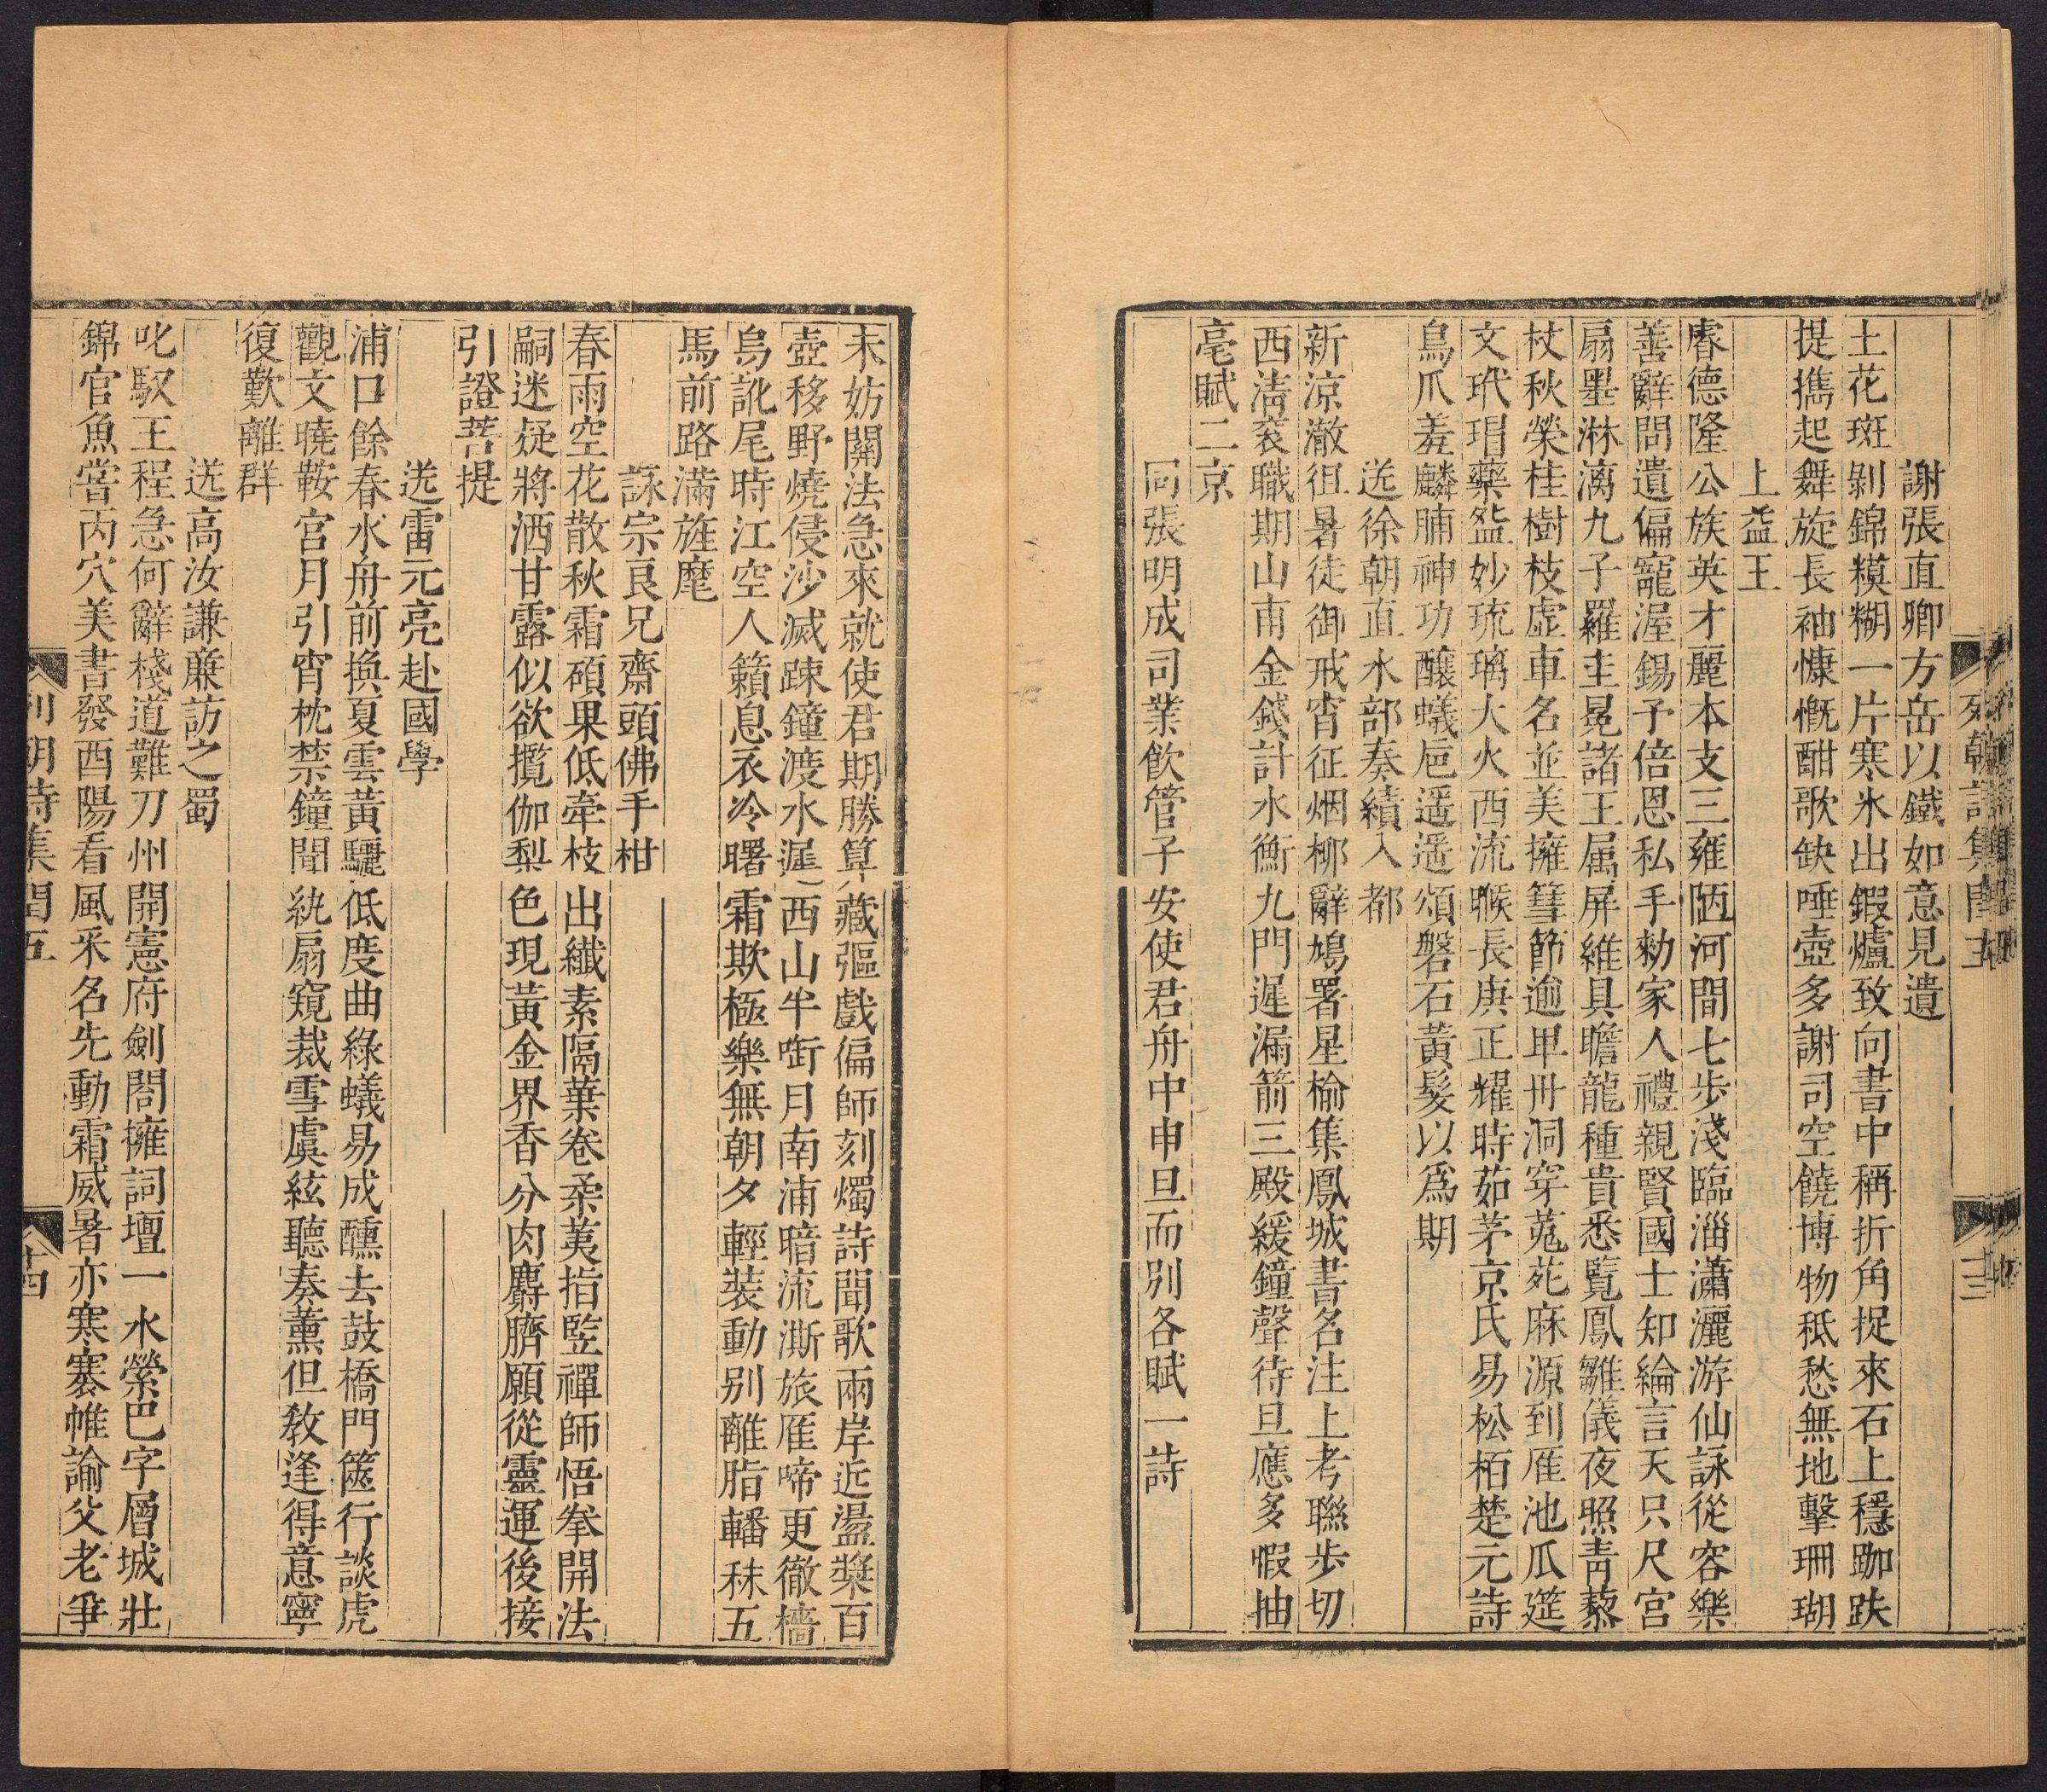 謝張直卿方岳以鐵如意見遺
土花斑剝錦糢糊一片寒氷出鍜爐致向書中稱折角捉來石上穩跏趺
提攜起舞旋長袖慷慨酣歌缺唾壺多謝司空饒博物秪愁無地擊珊瑚
上益王
睿德隆公族英才麗本支三雍陋河間七步淺臨淄瀟灑游仙詠從容樂
善辭問遺偏寵渥錫予倍恩私手勑家人禮親賢國士知綸言天只尺宮
扇墨淋漓九子羅圭冕諸王属屏維具瞻龍種貴悉覧鳳雛儀夜照青藜
杖秋榮桂樹枝虛車名並美擁篲節逾卑丹洞穿菟苑麻源到雁池瓜筵
文玳瑁藥盌妙琉璃大火西流暌長庚正耀時茹茅京氏易松栢楚元詩
鳥爪羞麟脯神功釀蟻巵遥遥頌磐石黃髮以爲期
送徐朝直水部奏績入都
新涼澈徂暑徒御戒宵征烟柳辭鳩署星榆集鳳城書名注上考聯步切
西淸袞職期山甫金錢計水衡九門遲漏箭三殿緩鐘聲待旦應多暇抽
亳賦二京
同張明成司業飮管子安使君舟中申旦而別各賦一詩
列朝詩集閏五
未妨關法急來就使君期勝算藏彄戲偏師刻燭詩聞歌兩岸近盪槳百
壺移野燒侵沙滅踈鐘渡水遲西山半啣月南浦暗流澌旅雁啼更徹檣
烏訛尾時江空人籟息衣冷曙霜欺極樂無朝夕輕裝動別離脂轓秣五
馬前路滿旌麾
詠宗良兄齋頭佛手柑
春雨空花散秋霜碩果低牽枝出纖素隔葉卷柔荑指竪禪師悟拳開法
嗣迷疑將洒甘露似欲攬伽梨色現黃金界香分肉麝臍願從靈運後接
引證菩提
送雷元亮赴國學
浦口餘春水舟前換夏雲黃驪低度曲綠蟻易成醺去鼓橋門篋行談虎
觀文曉鞍宮月引宵枕禁鐘聞紈扇窺裁雪虞絃聽奏薰但敎逢得意寧
復歎離群
送高汝謙亷訪之蜀
叱馭王程急何辭棧道難刀州開憲府劍閣擁詞壇一水縈巴字層城壯
錦官魚嘗丙穴美書發酉陽看風采名先動霜威暑亦寒褰帷諭父老爭
列朝詩集閏五
十四